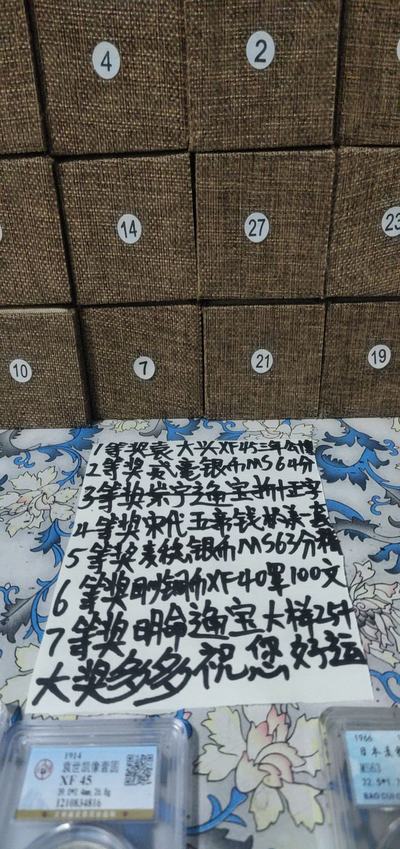 4
2
14
27
23
10
7
21
19
1等奖袁大头XF45三年公博
2等奖 银币MS64分
3等奖崇宁通宝折十
4等奖宋代五帝钱
5等奖 银币MS63分
6等奖 铜币XF40 100文
7等奖明命通宝大样
大奖多多祝您好运
1914
袁世凯像壹圆
XF 45
39.0*2.4mm, 26.8g
1210834816
1966
日本
MS63
22.5*1.7